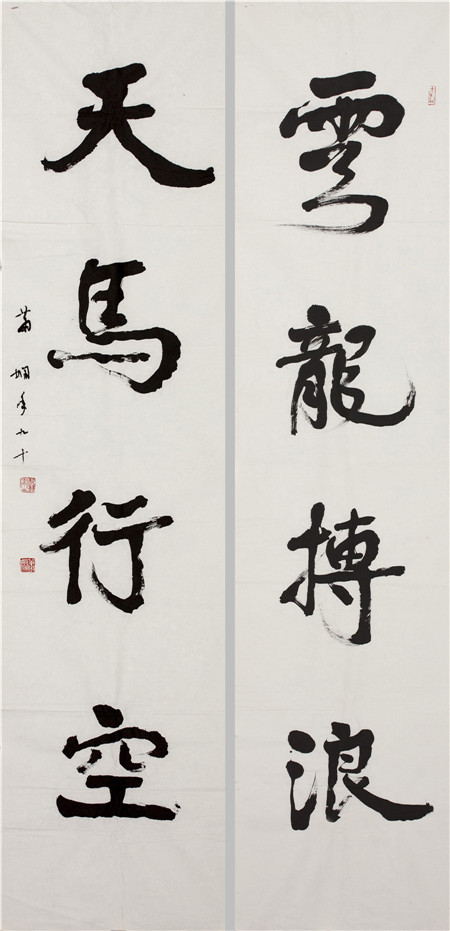 雲龍搏浪
天馬行空
萧娴年九十